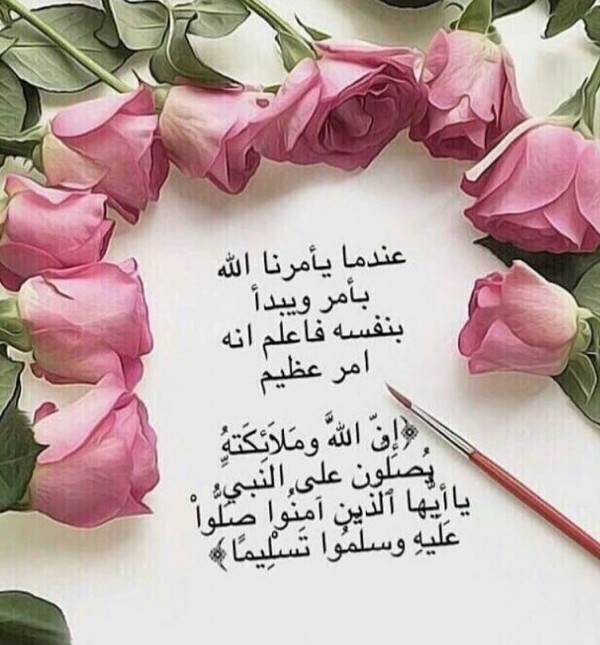 عندما يأمرنا الله
بأمر ويبدأ
بنفسه فاعلم انه
امر عظيم
﴿إِنَّ اللهَّ ومَلاَئِكَتهُِ
يُصَلُّون على النبي
ياأَيُّها ٱلذِّين آمَنُوا صَلُّواْ
عَلَيهِ وسلِّمُوا تَسْلِيمًا﴾